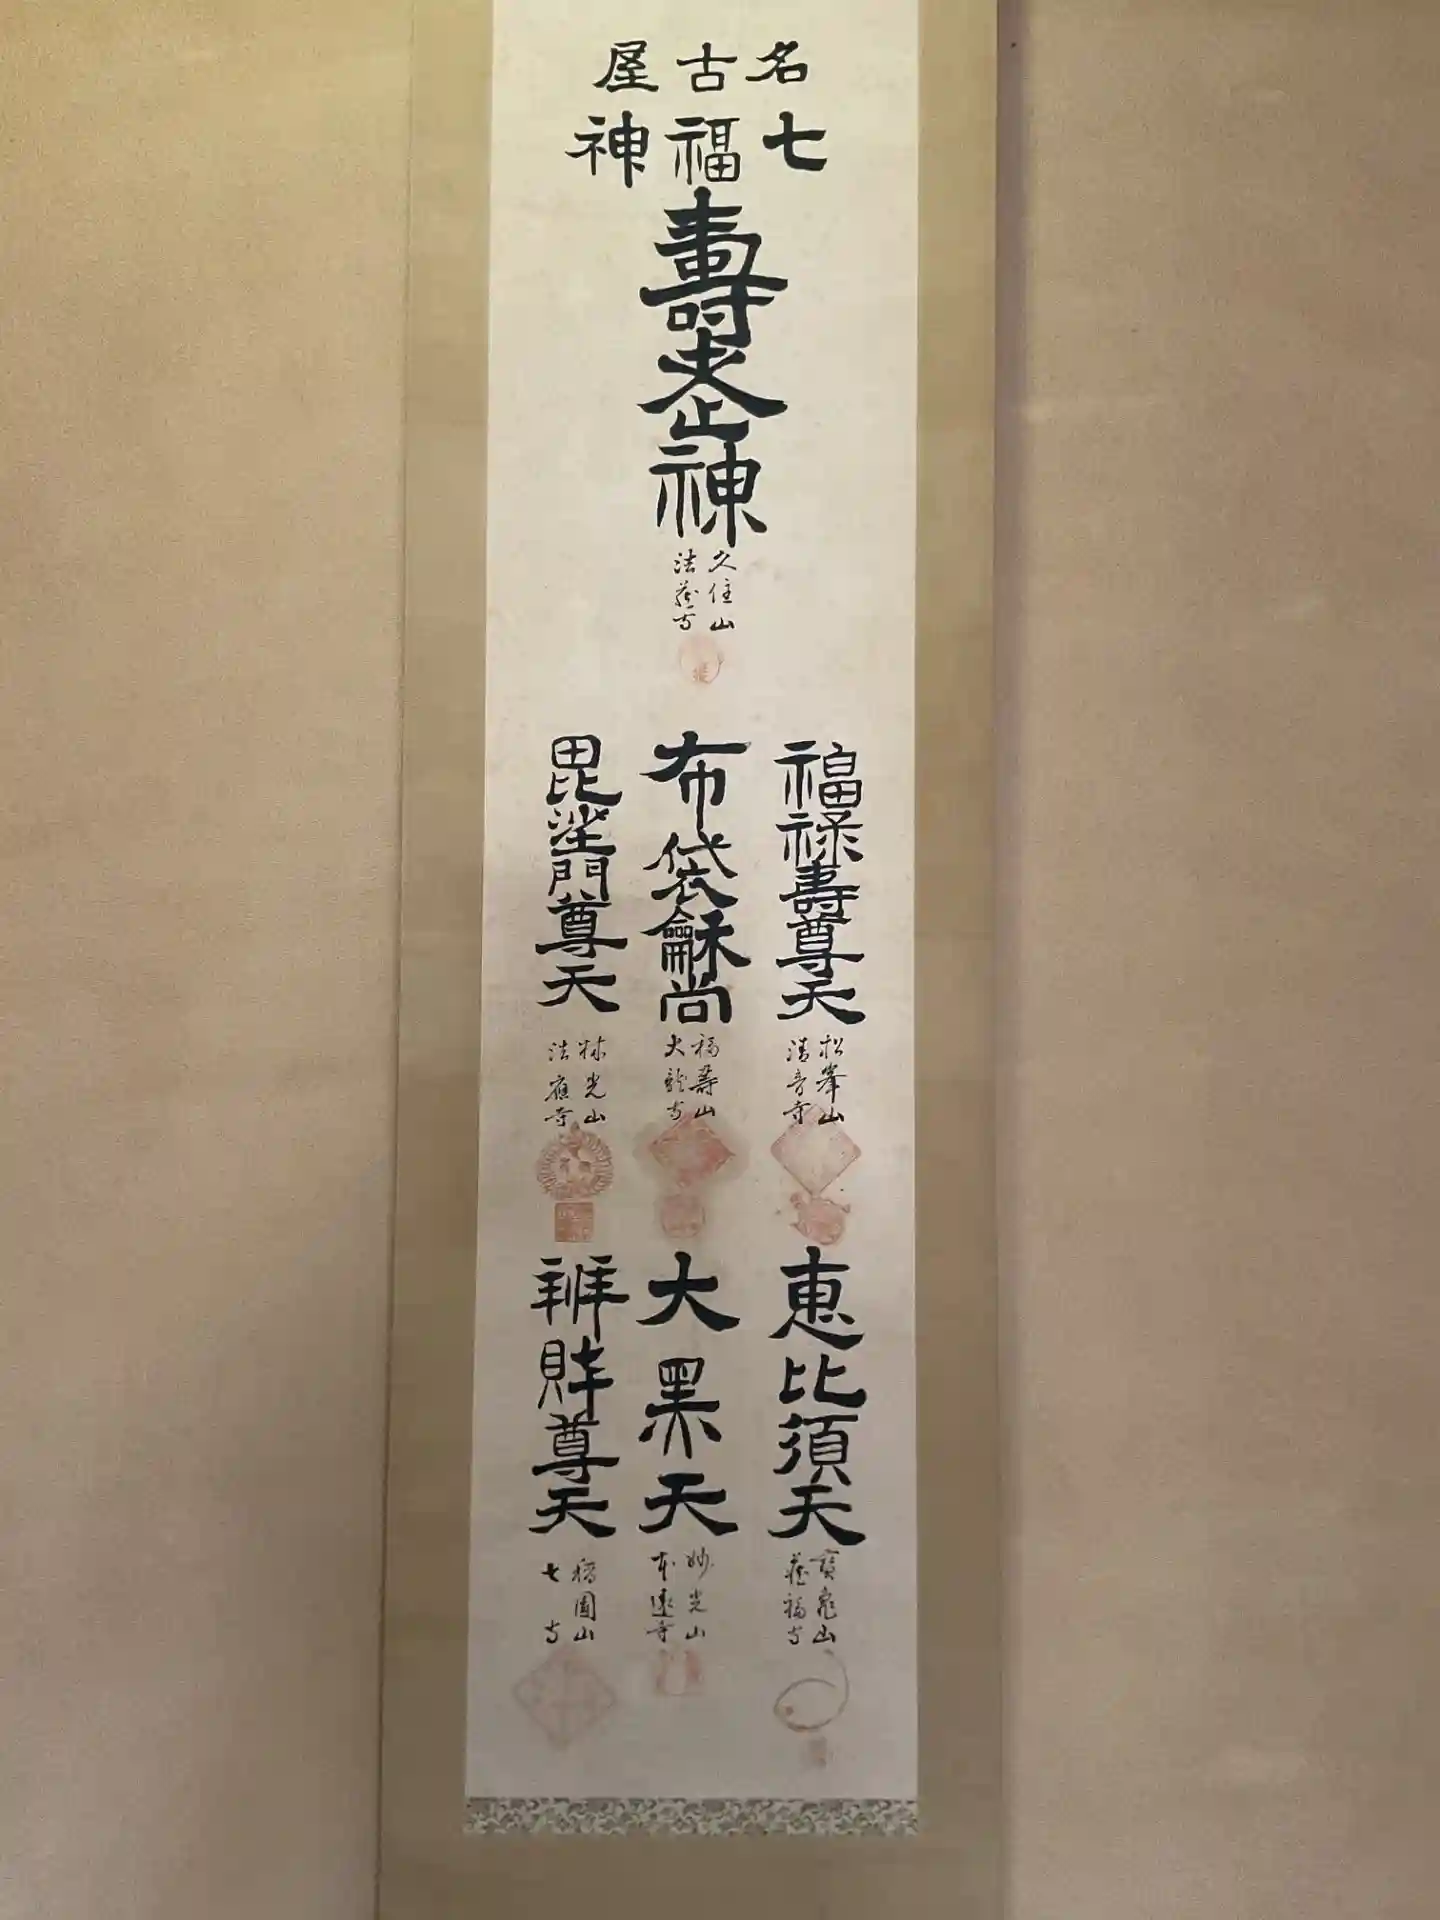 名古屋
七福神
壽老神
久住山
法藏寺
福禄壽尊天
松峯山
清音寺
布袋龢尚
福壽山
大龍寺
毘沙門尊天
林光山
法應寺
恵比須天
寶龜山
藏福寺
大黒天
妙光山
本遠寺
辨財尊天
稲園山
七寺